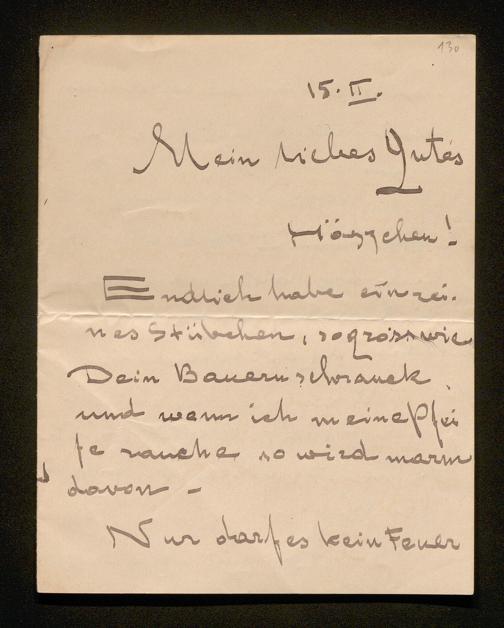 130
15. II.
Mein liebes Gutes
Häszchen!
Endlich habe ein rei-
nes Stübchen, so gross wie
Dein Bauernschrank,
und wenn ich meine Pfei
fe rauche so wird warm
davon -
Nur darf es kein Feuer